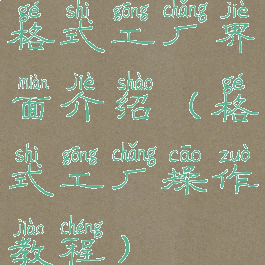 gé shì gōng chǎng jiè
格式工厂界
miàn jiè shào gé
面介绍（格
shì gōng chǎng cāo zuò
式工厂操作
jiào chéng
教程）